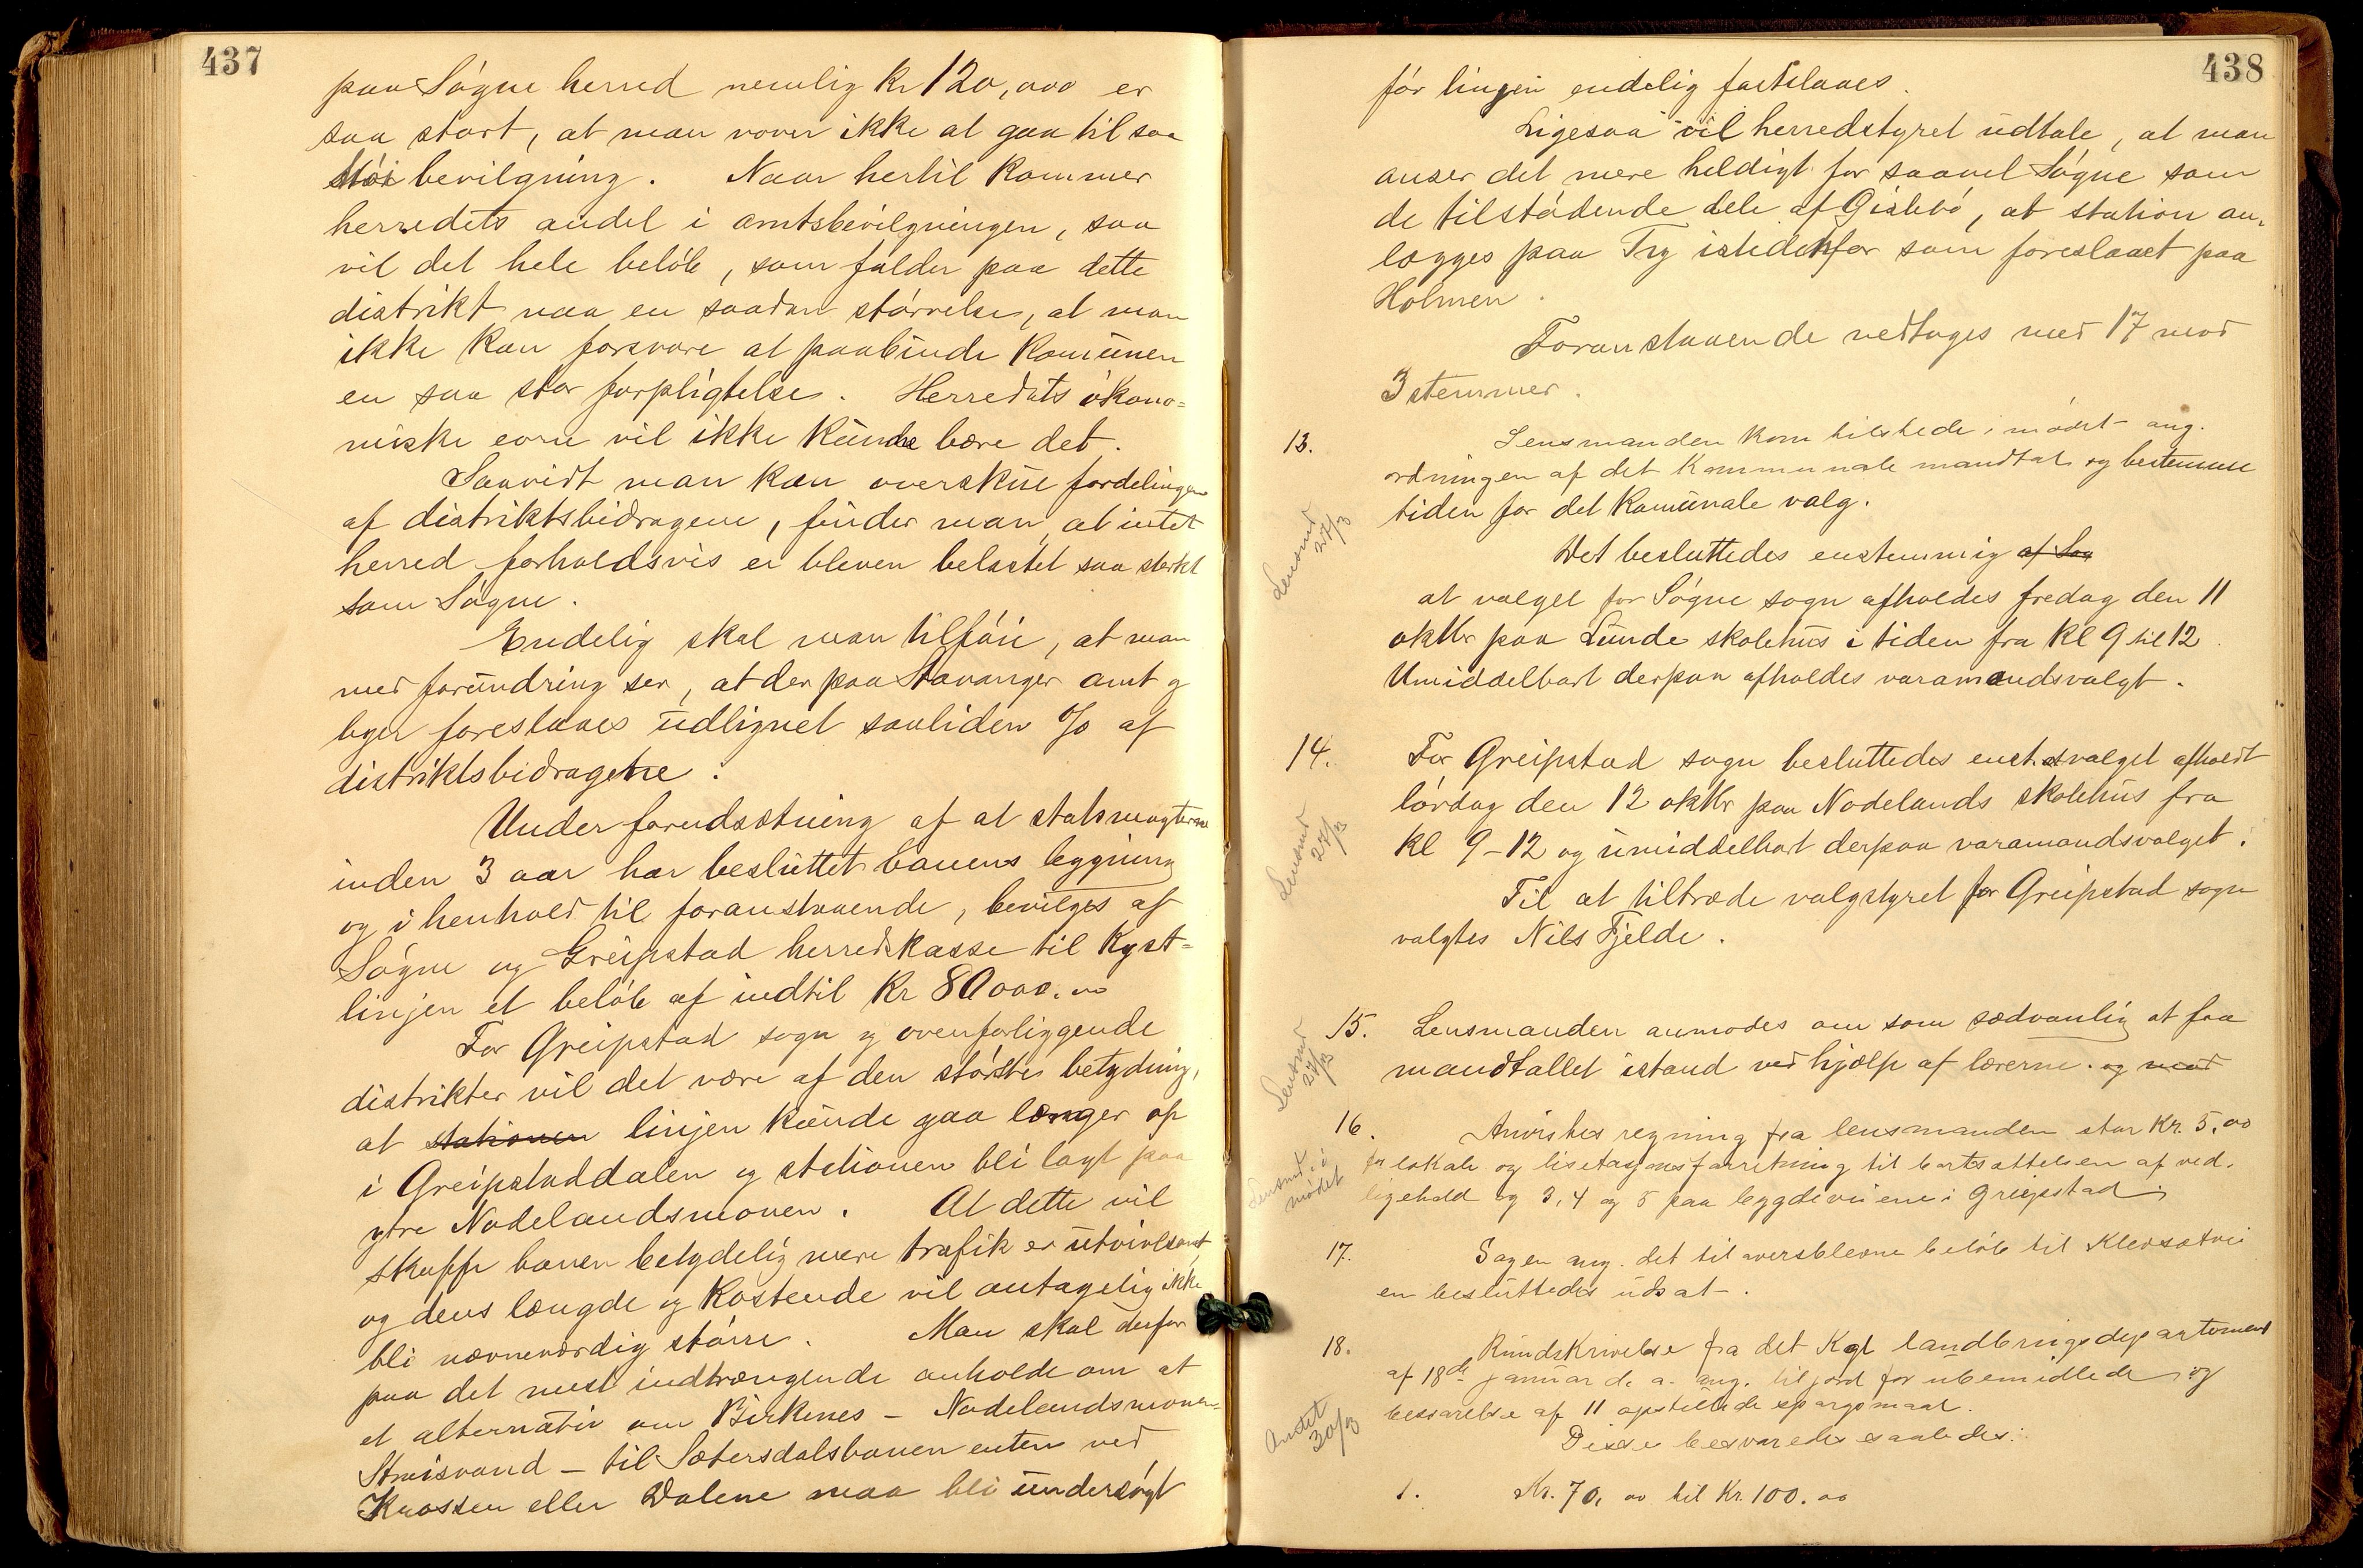 437
paa Søgne herred nemlig Kr 120,000 er
saa stort, at man vover ikke at gaa til saa
stor bevilgning. Naar hertil kommer
herredets andel i amtsbevilgningen, saa
vil det hele beløb, som falder paa dette
distrikt naa en saadan størrelse, at man
ikke kan forsvare at paabinde komünen
en saa stor forpligtelse. Herredets økono=
miske evne vil ikke kunde bære det.
Saavidt man kan overskue fordelingen
af distriktsbidragene, finder man, at intet
herred forholdsvis er bleven belastet saa sterkt
som Søgne.
Endelig skal man tilføie, at man
med forundring ser, at der paa Stavanger amt og
byer foreslaaes udlignet saaliden % af
distriktsbidragene.
Under forudsætning af at statsmagterne
inden 3 aar har besluttet banens lægning
og i henhold til foranstaaende, bevilges af
Søgne og Greipstad herredskasse til Kyst=
linjen et beløb af indtil Kr 80000.00
For Greipstad sogn og ovenforliggende
distrikter vil det være af den største betydning,
at stationen linjen kunde gaa længer op
i Greipstaddalen og stationen bli lagt paa
ytre Nodelandsmoen. At dette vil
skaffe banen betydelig mere trafik er utvivlsomt
og dens længde og kostende vil antagelig ikke
bli nævneværdig større. Man skal derfor
paa det mest indtrængende anholde om at
et alternativ om Birkenes - Nodelandsmoen=
Straisvand - til Sætersdalsbanen enten ved
Krossen eller Dalene maa bli undersøgt
438
før linjen endelig fastslaaes.
Ligesaa vil herredstyret udtale, at man
anser det mere heldigt for saavel Søgne som
de tilstødende dele af Gislebø, at station an=
lægges paa Try istedenfor som foreslaaet paa
Holmen.
Foranstaaende vedtages med 17 mod
3 stemmer.
13. Lensmanden kom tilstede i mødet ang.
ordningen af det kommunale mandtal og bestemme
tiden for det komünale valg.
Lensmd
27/3
Det besluttedes enstemmig af Søg
at valget for Søgne sogn afholdes fredag den 11
oktbr paa Lunde skolehus i tiden fra Kl 9 til 12.
Umiddelbart derpaa afholdes varamandsvalgt.
14. For Greipstad sogn besluttedes enst. at valget afholdt
lørdag den 12 oktbr paa Nodelands skolehus fra
Kl 9-12 og umiddelbart derpaa varamandsvalget.
Lensmd
27/3
Til at tiltræde valgstyret for Greipstad sogn
valgtes Nils Fjelde.
15. Lensmanden anmodes om som sædvanlig at faa
mandtallet istand ved hjælp af lærerne. og med
Lensmd
27/3
16. Anvistes regning fra lensmanden stor Kr. 5.00
for lokale og lisetasjonsforretning til bortsættelsen af ved.
ligehold og 3, 4 og 5 paa bygdeveiene i Greipstad
Lensmd i
mødet
17. Sagen ang. det til oversblevne beløb til Klevsætvei
en besluttedes udsat.
18. Rundskrivelse fra det Kgl landbrugsdepartement
af 18de januar d. a. ang. til jord for ubemidlede og
besvarelse af 11 opstillede spørgsmaal.
Andet
30/3
Disse besvaredes saaledes:
1. Kr. 70,00 til Kr. 100.00